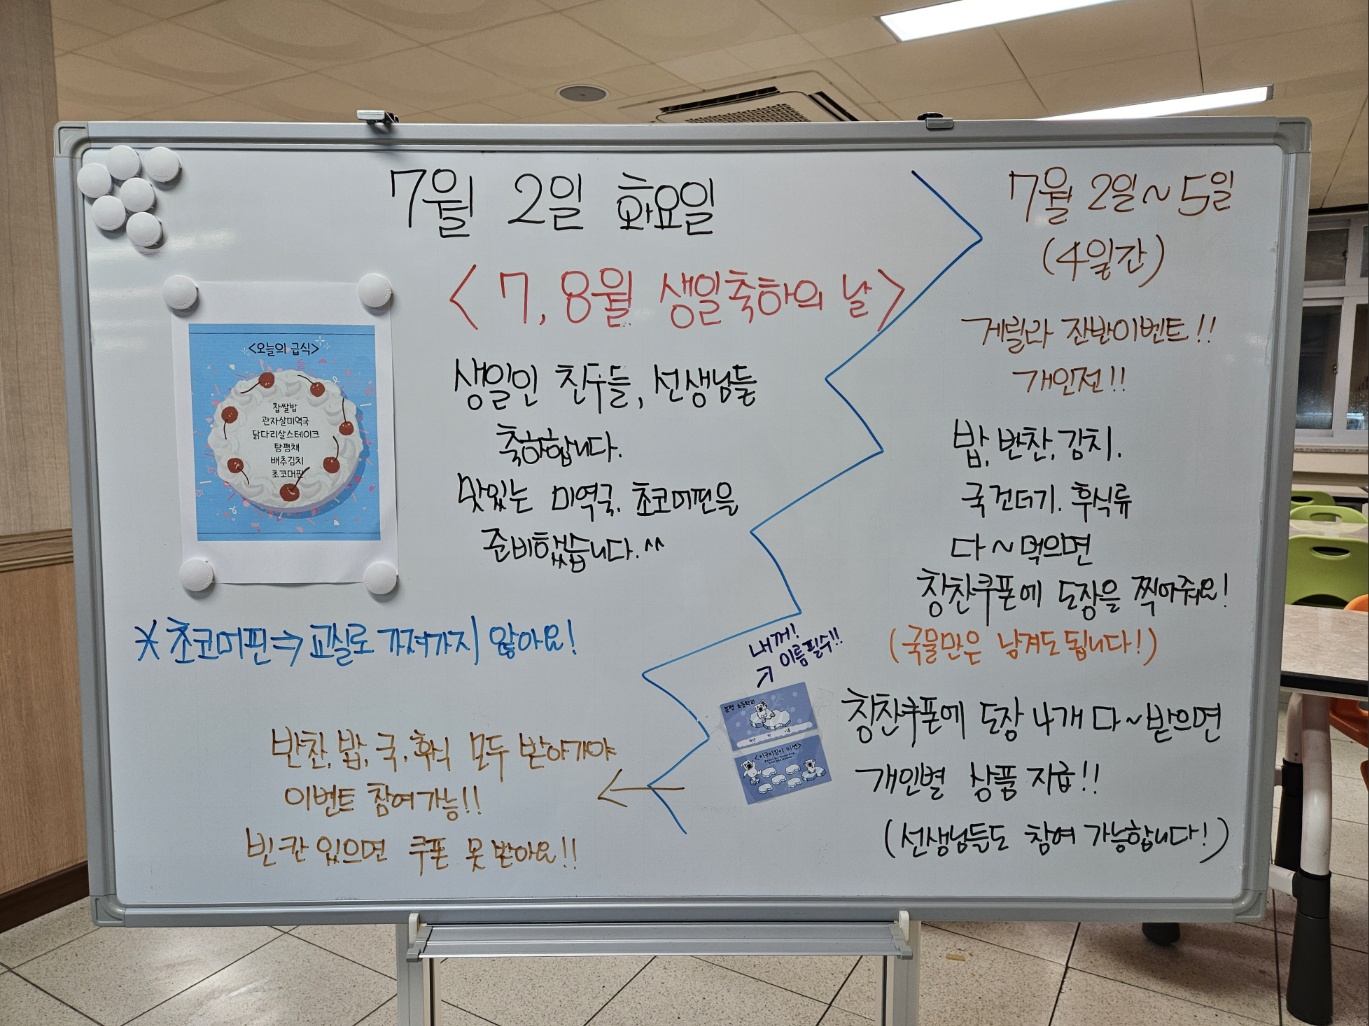 7월 2일 화요일
<7, 8월 생일축하의 날>
<오늘의 급식>
찹쌀밥
관자살미역국
닭다리살스테이크
탕평채
배추김치
초코머핀
생일인 친구들, 선생님들
축하합니다.
맛있는 미역국, 초코머핀을
준비했습니다.^^
* 초코머핀⇒교실로 가져가지 않아요!
반찬, 밥, 국, 후식 모두 받아가야
이벤트 참여가능!!
빈칸 있으면 쿠폰 못 받아요!!
7월 2일~5일
(4일간)
게릴라 잔반이벤트!!
개인전!!
밥, 반찬, 김치,
국 건더기, 후식류
다~먹으면
칭찬쿠폰에 도장을 찍어줘요!
(국물만은 남겨도 됩니다!)
내꺼!
↗ 이름필수!!
칭찬쿠폰에 도장 4개 다~받으면
개인별 상품 지급!!
(선생님들도 참여 가능합니다!)